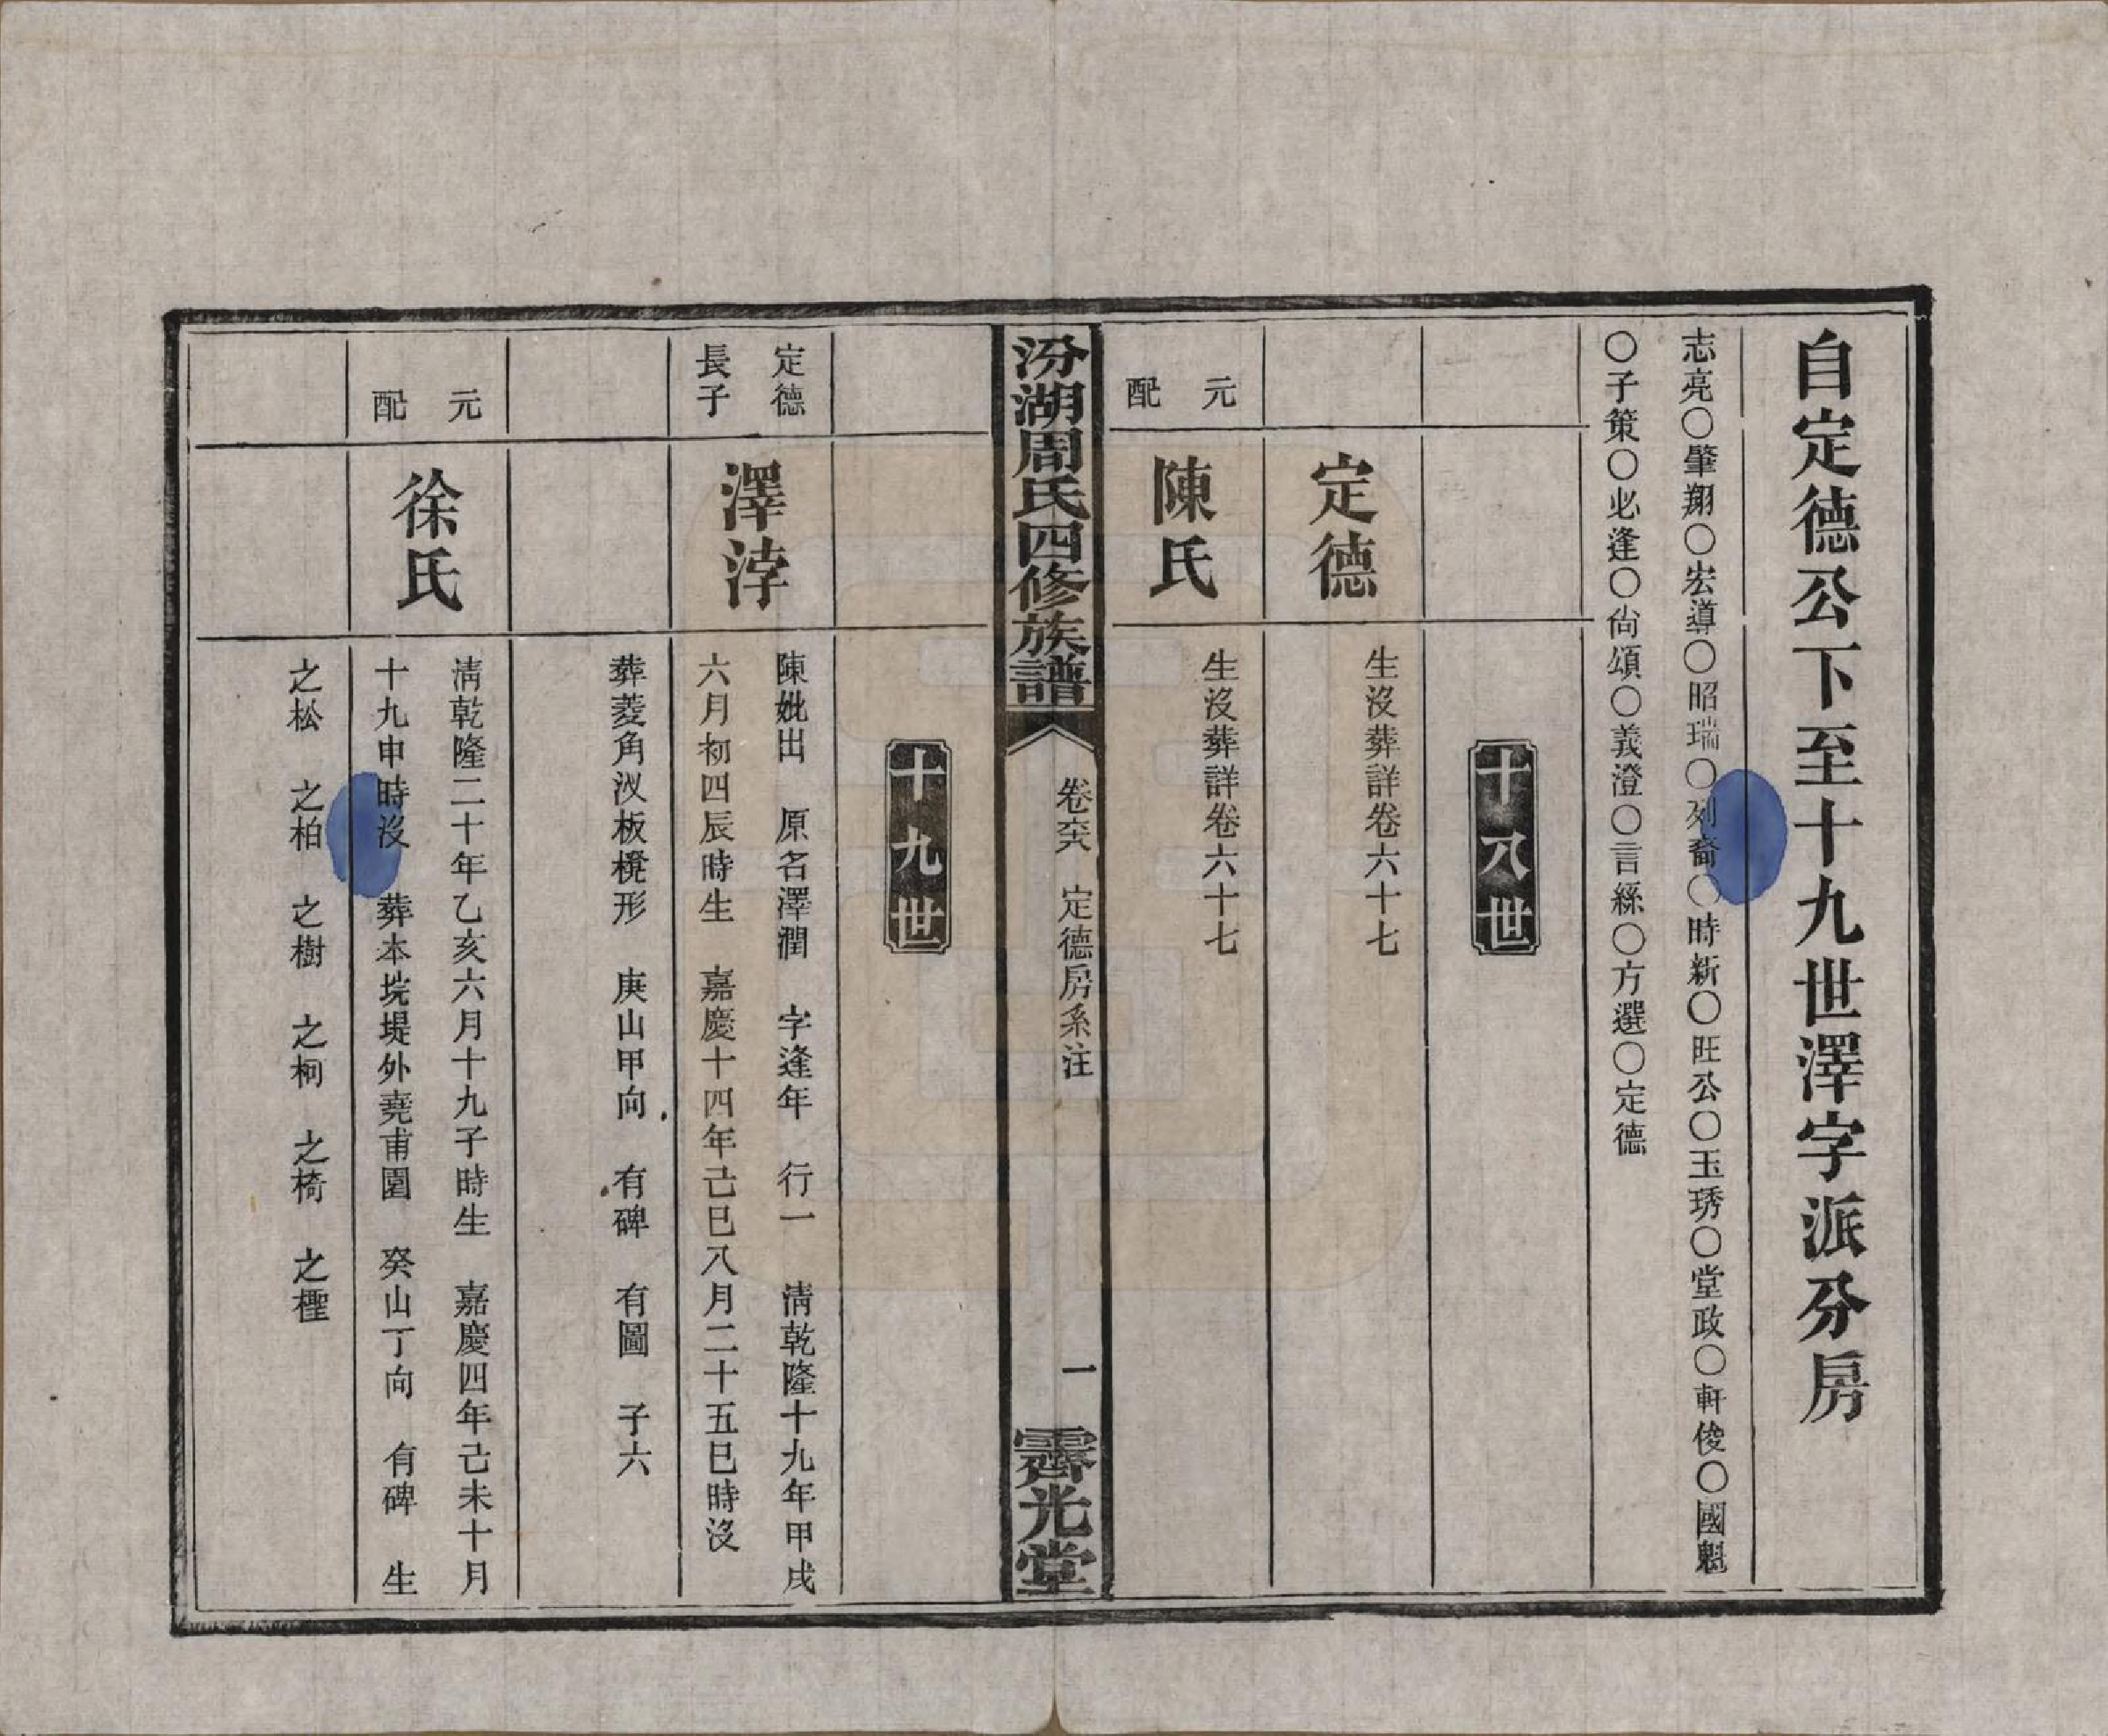 自定德公下至十九世澤字派分房
志亮○肇翔○宏導○昭瑞○列裔○時新○旺公○玉琇○堂政○軒俊○國魁
○子策○必逢○尙頌○義澄○言綵○方選○定德
十八世
定德
生沒葬詳卷六十七
元配
陳氏
生沒葬詳卷六十七
汾湖周氏四修族譜
卷六八
定德房系注
一
霽光堂
十九世
定德
長子
澤浡
陳妣出 原名澤潤 字逢年 行一 淸乾隆十九年甲戌
六月初四辰時生 嘉慶十四年己巳八月二十五巳時沒
葬菱角汊板櫈形 庚山甲向 有碑 有圖 子六
元配
徐氏
淸乾隆二十年乙亥六月十九子時生 嘉慶四年己未十月
十九申時沒 葬本垸堤外堯甫園 癸山丁向 有碑 生
之松 之柏 之樹 之柯 之椅 之檉